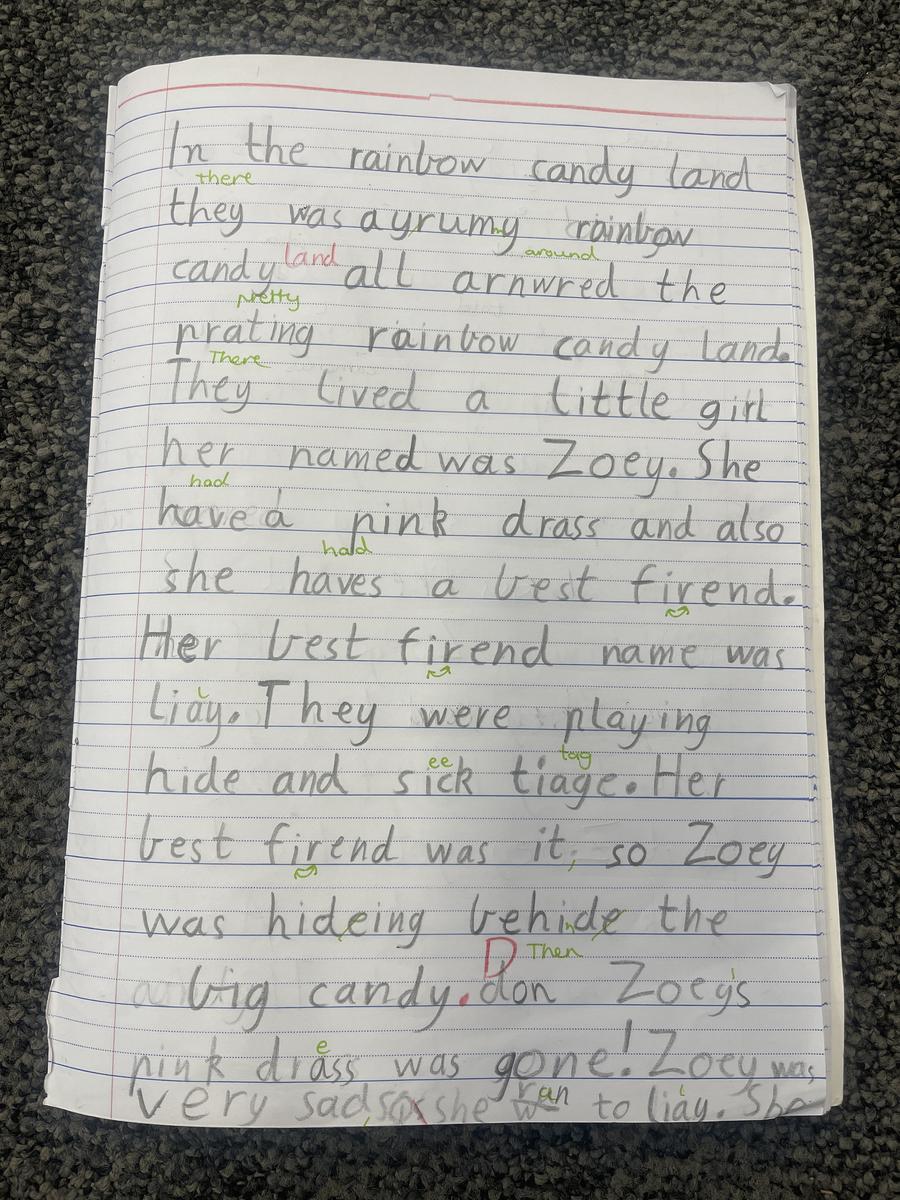 In the rainbow candy land
there
they was a yrumy rainbow
land around
candy all arnwred the
pretty
prating rainbow candy land.
There
They lived a little girl
her named was Zoey. She
had
have a pink drass and also
had
she haves a best firend.
Her best firend name was
liay. They were playing
ee tag
hide and sick tiage. Her
best firend was it, so Zoey
was hideing behinde the
D Then
big candy. don Zoey's
e
pink drass was gone! Zoey was
very sad, so she ran to liay. She